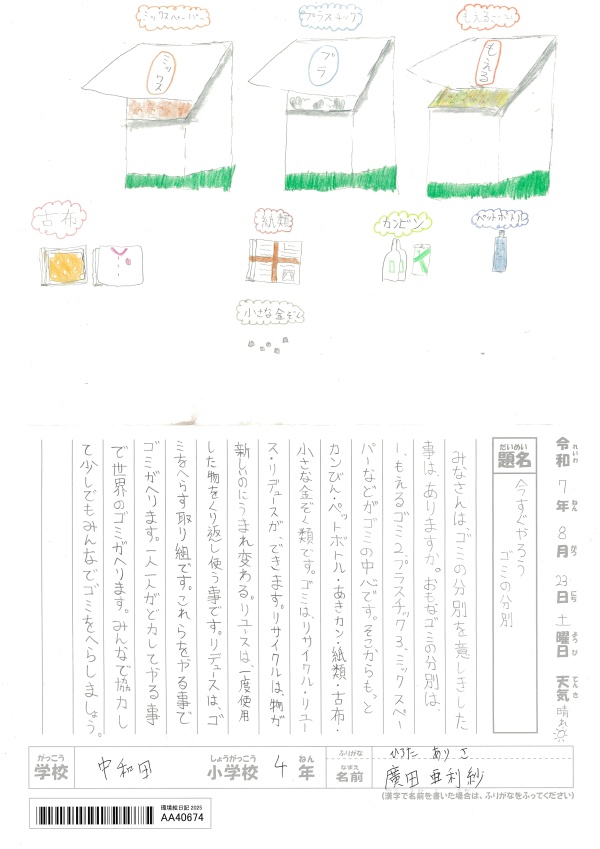 ミックスペーパー
プラスチック
もえるごミ
ミックス
プラ
もえる
古布
紙類
カンビン
ペットボトル
小さな金ぞく
令和7年8月23日土曜日 天気 晴れ
れいわ ねん がつ にち ようび てんき
だいめい
題名
今すぐやろう
ゴミの分別
みなさんは、ゴミの分別を意しきした
事は、ありますか。おもなゴミの分別は、
1、もえるゴミ2、プラスチック3、ミックスペー
パーなどがゴミの中心です。そこからもっと
カンびん・ペットボトル・あきカン・紙類・古布・
小さな金ぞく類です。ゴミは、リサイクル・リユー
ス・リデュースが、できます。リサイクルは、物が
新しいのにうまれ変わる。リユースは、一度使用
した物をくり返し使う事です。リデュースは、ゴ
ミをへらす取り組です。これらをやる事で
ゴミがへります。一人一人がど力してやる事
で世界のゴミがへります。みんなで協力し
て少しでもみんなでゴミをへらしましょう。
がっこう
学校
中和田
しょうがっこう
小学校
4
ねん
年
ふりがな
ひろた ありさ
なまえ
名前
廣田 亜利紗
(漢字で名前を書いた場合は、ふりがなをふってください)
環境絵日記2025
AA40674